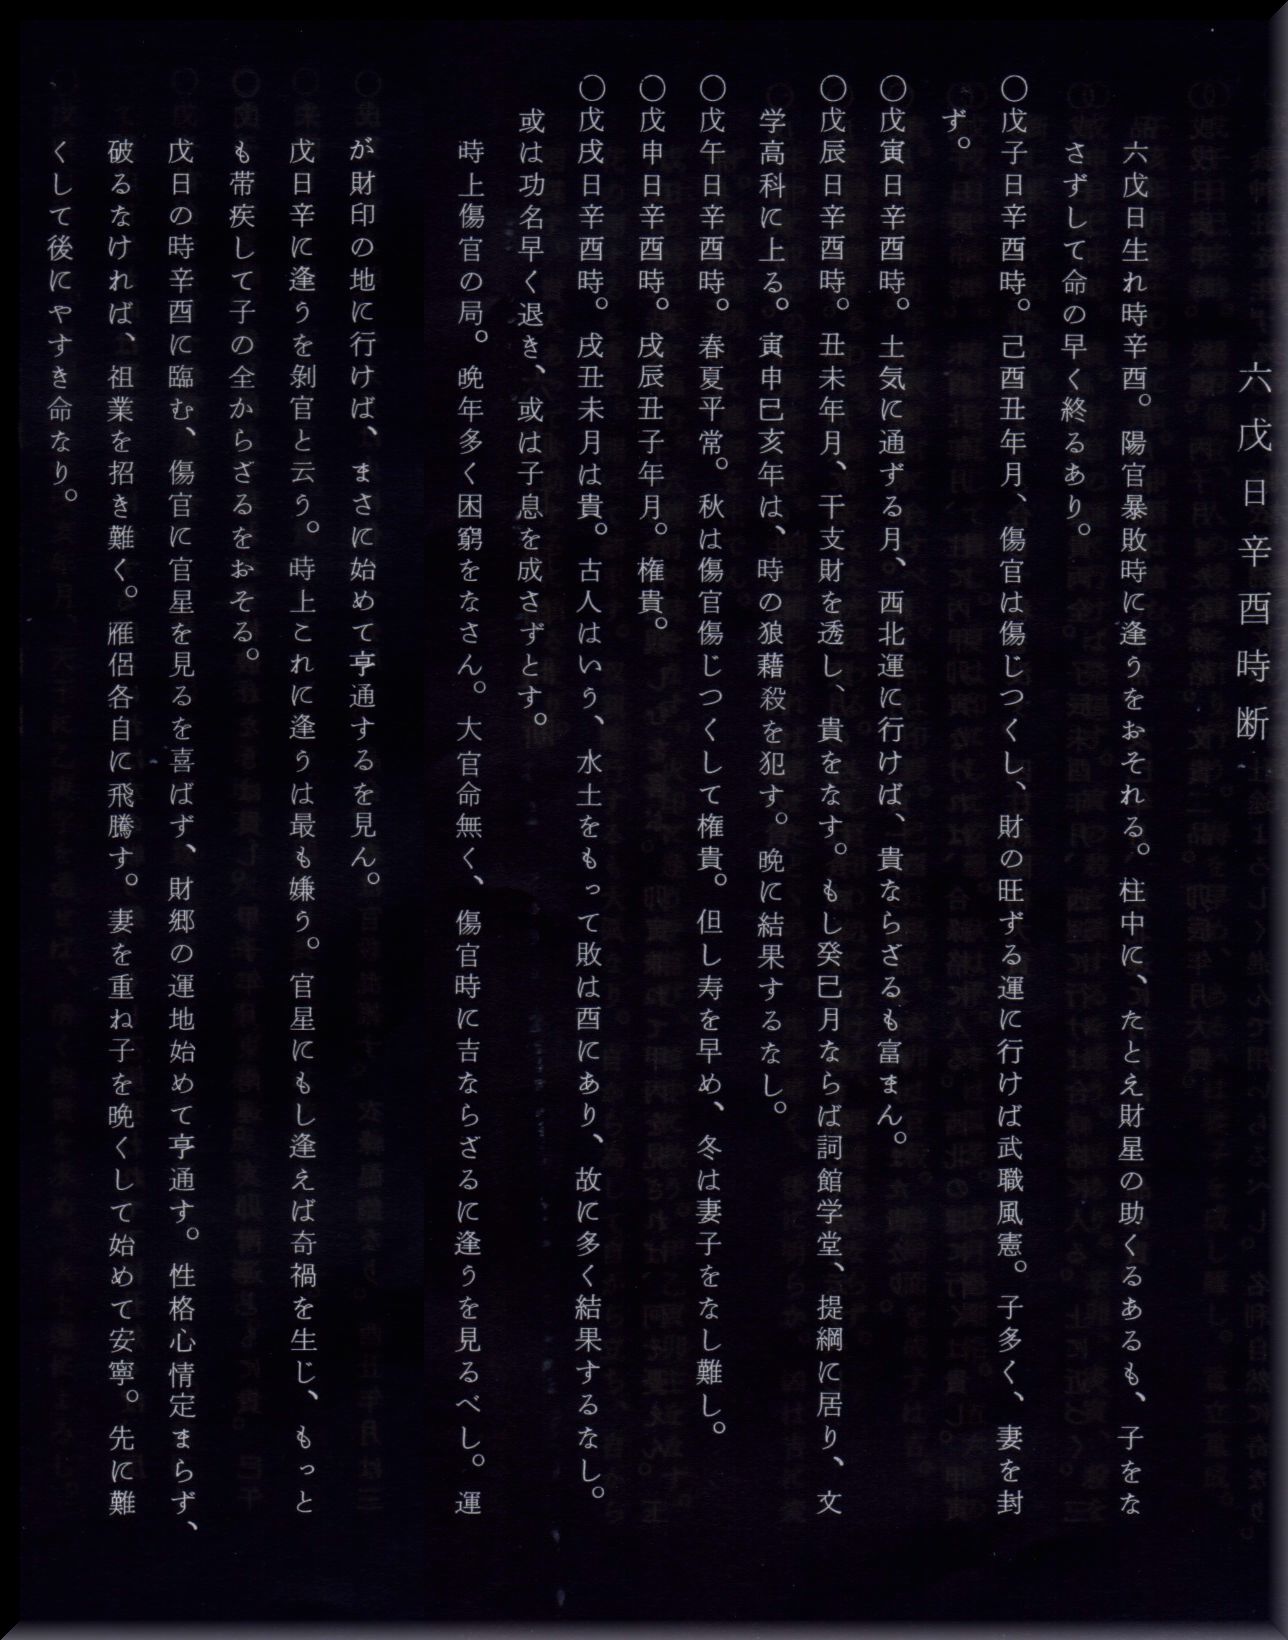 六戊日辛酉時断
六戊日生れ時辛酉。陽官暴敗時に逢うをおそれる。柱中に、たとえ財星の助くるあるも、子をな
さずして命の早く終るあり。
〇戊子日辛酉時。己酉丑年月、傷官は傷じつくし、財の旺ずる運に行けば武職風憲。子多く、妻を封
ず。
〇戊寅日辛酉時。土気に通ずる月、西北運に行けば、貴ならざるも富まん。
〇戊辰日辛酉時。丑未年月、干支財を透し、貴をなす。もし癸巳月ならば詞館学堂、提綱に居り、文
学高科に上る。寅申巳亥年は、時の狼藉殺を犯す。晩に結果するなし。
〇戊午日辛酉時。春夏平常。秋は傷官傷じつくして権貴。但し寿を早め、冬は妻子をなし難し。
〇戊申日辛酉時。戌辰丑子年月。権貴。
〇戊戌日辛酉時。戌丑未月は貴。古人はいう、水土をもって敗は酉にあり、故に多く結果するなし。
或は功名早く退き、或は子息を成さずとす。
時上傷官の局。晩年多く困窮をなさん。大官命無く、傷官時に吉ならざるに逢うを見るべし。運
が財印の地に行けば、まさに始めて亨通するを見ん。
戊日辛に逢うを剝官と云う。時上これに逢うは最も嫌う。官星にもし逢えば奇禍を生じ、もっと
も帯疾して子の全からざるをおそる。
戊日の時辛酉に臨む、傷官に官星を見るを喜ばず、財郷の運地始めて亨通す。性格心情定まらず、
破るなければ、祖業を招き難く。雁侶各自に飛騰す。妻を重ね子を晩くして始めて安寧。先に難
くして後にやすき命なり。